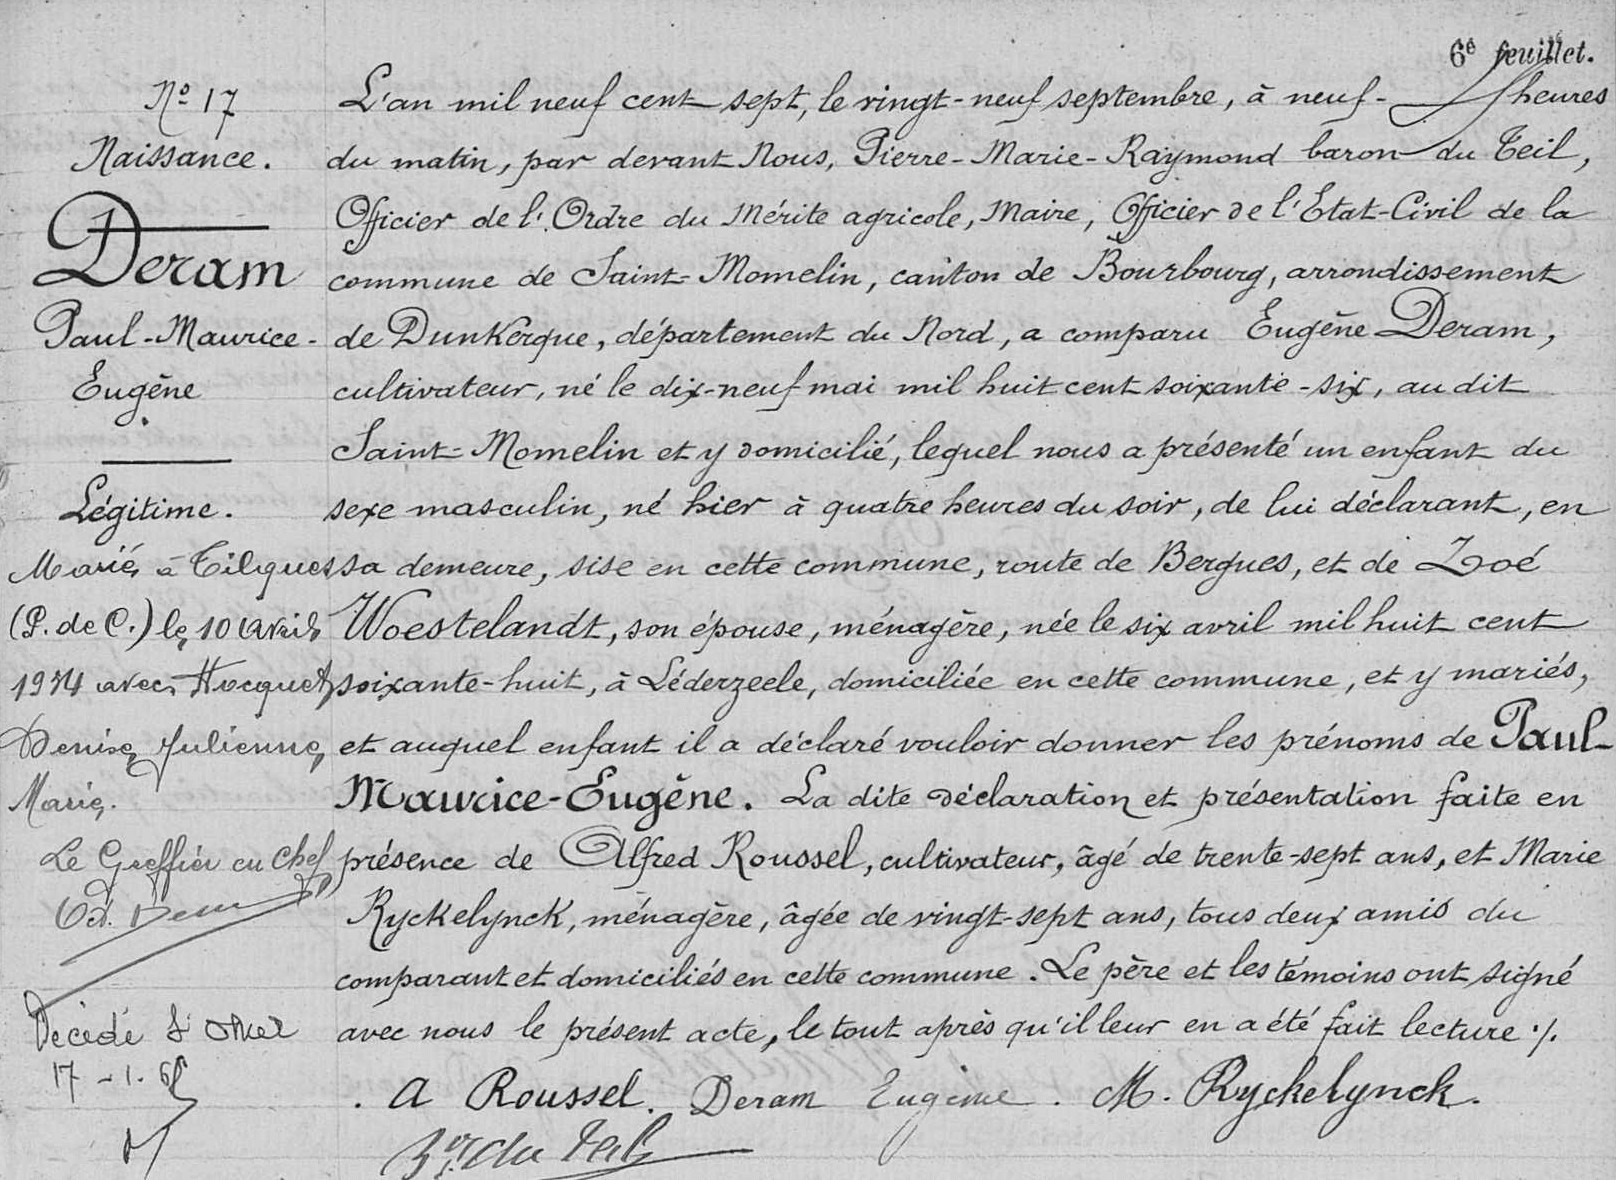 6e feuillet.
No 17
Naissance.
Deram
Paul-Maurice-
Eugène
Légitime.
Marié à Tilques
(P. de C.) le 10 avril
1934 avec Hocquet
Denise Julienne
Marie.
Le Greffier en chef
Décédé St Omer
17-1.
L'an mil neuf cent sept, le vingt-neuf septembre, à neuf- heures
du matin, par devant Nous, Pierre-Marie-Raymond baron du Teil,
Officier de l'Ordre du Mérite agricole, Maire, Officier de l'Etat-Civil de la
commune de Saint-Momelin, canton de Bourbourg, arrondissement
de Dunkerque, département du Nord, a comparu Eugène Deram,
cultivateur, né le dix-neuf mai mil huit cent soixante-six, au dit
Saint-Momelin et y domicilié, lequel nous a présenté un enfant du
sexe masculin, né hier à quatre heures du soir, de lui déclarant, en
sa demeure, sise en cette commune, route de Bergues, et de Zoé
Woestelandt, son épouse, ménagère, née le six avril mil huit cent
soixante-huit, à Léderzeele, domiciliée en cette commune, et y mariés,
et auquel enfant il a déclaré vouloir donner les prénoms de Paul-
Maurice-Eugène. La dite déclaration et présentation faite en
présence de Alfred Roussel, cultivateur, âgé de trente-sept ans, et Marie
Ryckelynck, ménagère, âgée de vingt-sept ans, tous deux amis du
comparant et domiciliés en cette commune. Le père et les témoins ont signé
avec nous le présent acte, le tout après qu'il leur en a été fait lecture ./.
A Roussel. Deram Eugène. M. Ryckelynck.
Bon du Teil